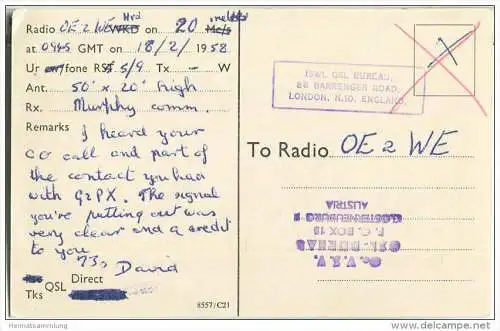 Radio OE2WE WKD Hrd on 20 Mc/s metres
at 0945 GMT on 18/2/1958
Ur fone RS 5/9 Tx — W
Ant. 50' x 20' high
Rx. Murphy comm.
Remarks I heard your
CQ call and part of
the contact you had
with G2PX. The signal
you're putting out was
very clear and a credit
to you.
73s David
Pse QSL Direct
Tks
8557/C21
ISWL QSL BUREAU,
86 BARRENGER ROAD,
LONDON, N.10, ENGLAND.
To Radio OE2WE
Oe. V. S. V.
QSL-BUREAU
P. O. BOX 15
KLOSTERNEUBURG 2
AUSTRIA
Heimatsammlung
www.ansichtskartenversand.com